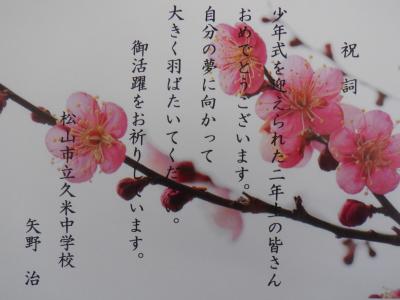 祝詞
少年式を迎えられた二年生の皆さん
おめでとうございます。
自分の夢に向かって
大きく羽ばたいてください。
御活躍をお祈りしています。
松山市立久米中学校
矢野 治